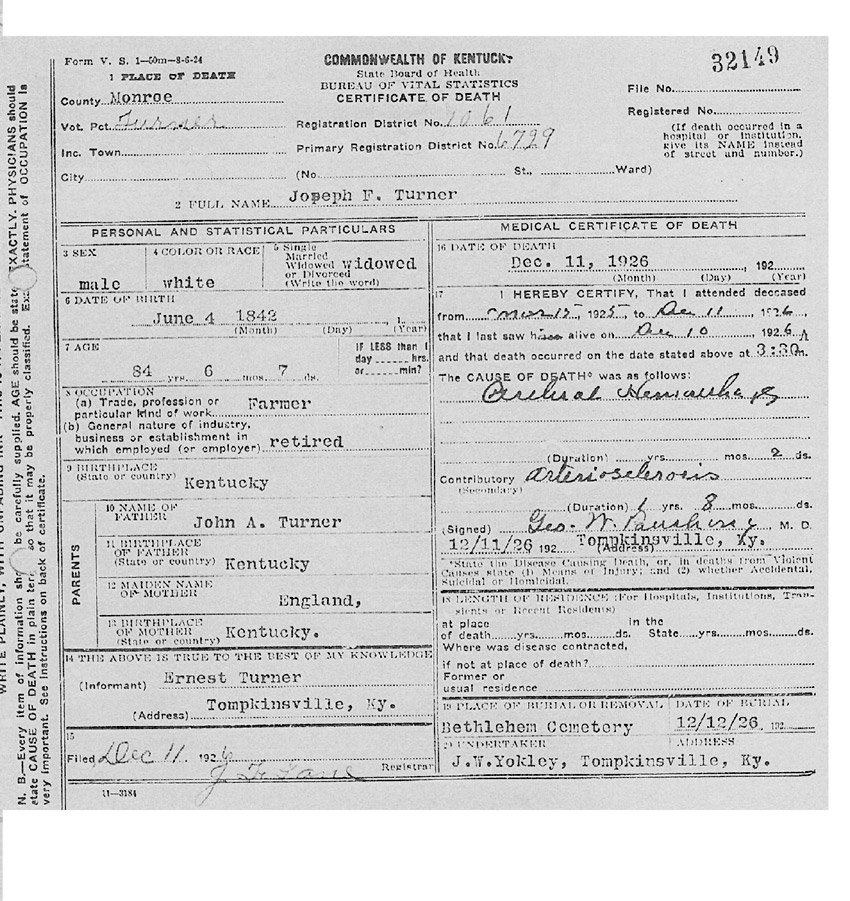 32149
Form V. S. 1—50m—8-6-24
COMMONWEALTH OF KENTUCKY
State Board of Health
BUREAU OF VITAL STATISTICS
CERTIFICATE OF DEATH
1 PLACE OF DEATH
County Monroe
Vot. Pct. Turner
Inc. Town
City
Registration District No. 1061
Primary Registration District No. 6729
(No. St., Ward)
File No.
Registered No.
(If death occurred in a
hospital or institution,
give its NAME instead
of street and number.)
2 FULL NAME Joseph F. Turner
PERSONAL AND STATISTICAL PARTICULARS
3 SEX
male
4 COLOR OR RACE
white
5 Single
Married
Widowed widowed
or Divorced
(Write the word)
6 DATE OF BIRTH
June 4 1842 , 1
(Month) (Day) (Year)
7 AGE
84 yrs. 6 mos. 7 ds.
IF LESS than 1
day hrs.
or min?
8 OCCUPATION
(a) Trade, profession or
particular kind of work Farmer
(b) General nature of industry,
business or establishment in
which employed (or employer) retired
9 BIRTHPLACE
(State or country)
Kentucky
PARENTS
10 NAME OF
FATHER
John A. Turner
11 BIRTHPLACE
OF FATHER
(State or country) Kentucky
12 MAIDEN NAME
OF MOTHER
England,
13 BIRTHPLACE
OF MOTHER
(State or country) Kentucky.
14 THE ABOVE IS TRUE TO THE BEST OF MY KNOWLEDGE
(Informant) Ernest Turner
(Address) Tompkinsville, Ky.
15
Filed Dec 11 1926
Registrar
11—3184
MEDICAL CERTIFICATE OF DEATH
16 DATE OF DEATH
Dec. 11, 1926 , 192
(Month) (Day) (Year)
17 I HEREBY CERTIFY, That I attended deceased
from 1925, to Dec 11, 1926
that I last saw him alive on Dec 10 1926 A
and that death occurred on the date stated above at 3:30 m.
The CAUSE OF DEATH* was as follows:
Cerebral Hemorrhage
(Duration) yrs. mos. 2 ds.
Contributory Arteriosclerosis
(Secondary)
(Duration) 1 yrs. 8 mos. ds.
(Signed) Geo. W. M. D.
12/11/26 192 Tompkinsville, Ky.
(Address)
*State the Disease Causing Death, or, in deaths from Violent
Causes state (1) Means of Injury; and (2) whether Accidental,
Suicidal or Homicidal.
18 LENGTH OF RESIDENCE (For Hospitals, Institutions, Tran-
sients or Recent Residents)
at place In the
of death yrs. mos. ds. State yrs. mos. ds.
Where was disease contracted,
if not at place of death?
Former or
usual residence
19 PLACE OF BURIAL OR REMOVAL
Bethlehem Cemetery
DATE OF BURIAL
12/12/26 192
20 UNDERTAKER
ADDRESS
J.W.Yokley, Tompkinsville, Ky.
N. B.—Every item of information should be carefully supplied. AGE should be stated EXACTLY. PHYSICIANS should
state CAUSE OF DEATH in plain terms so that it may be properly classified. Exact statement of OCCUPATION is
very important. See instructions on back of certificate.